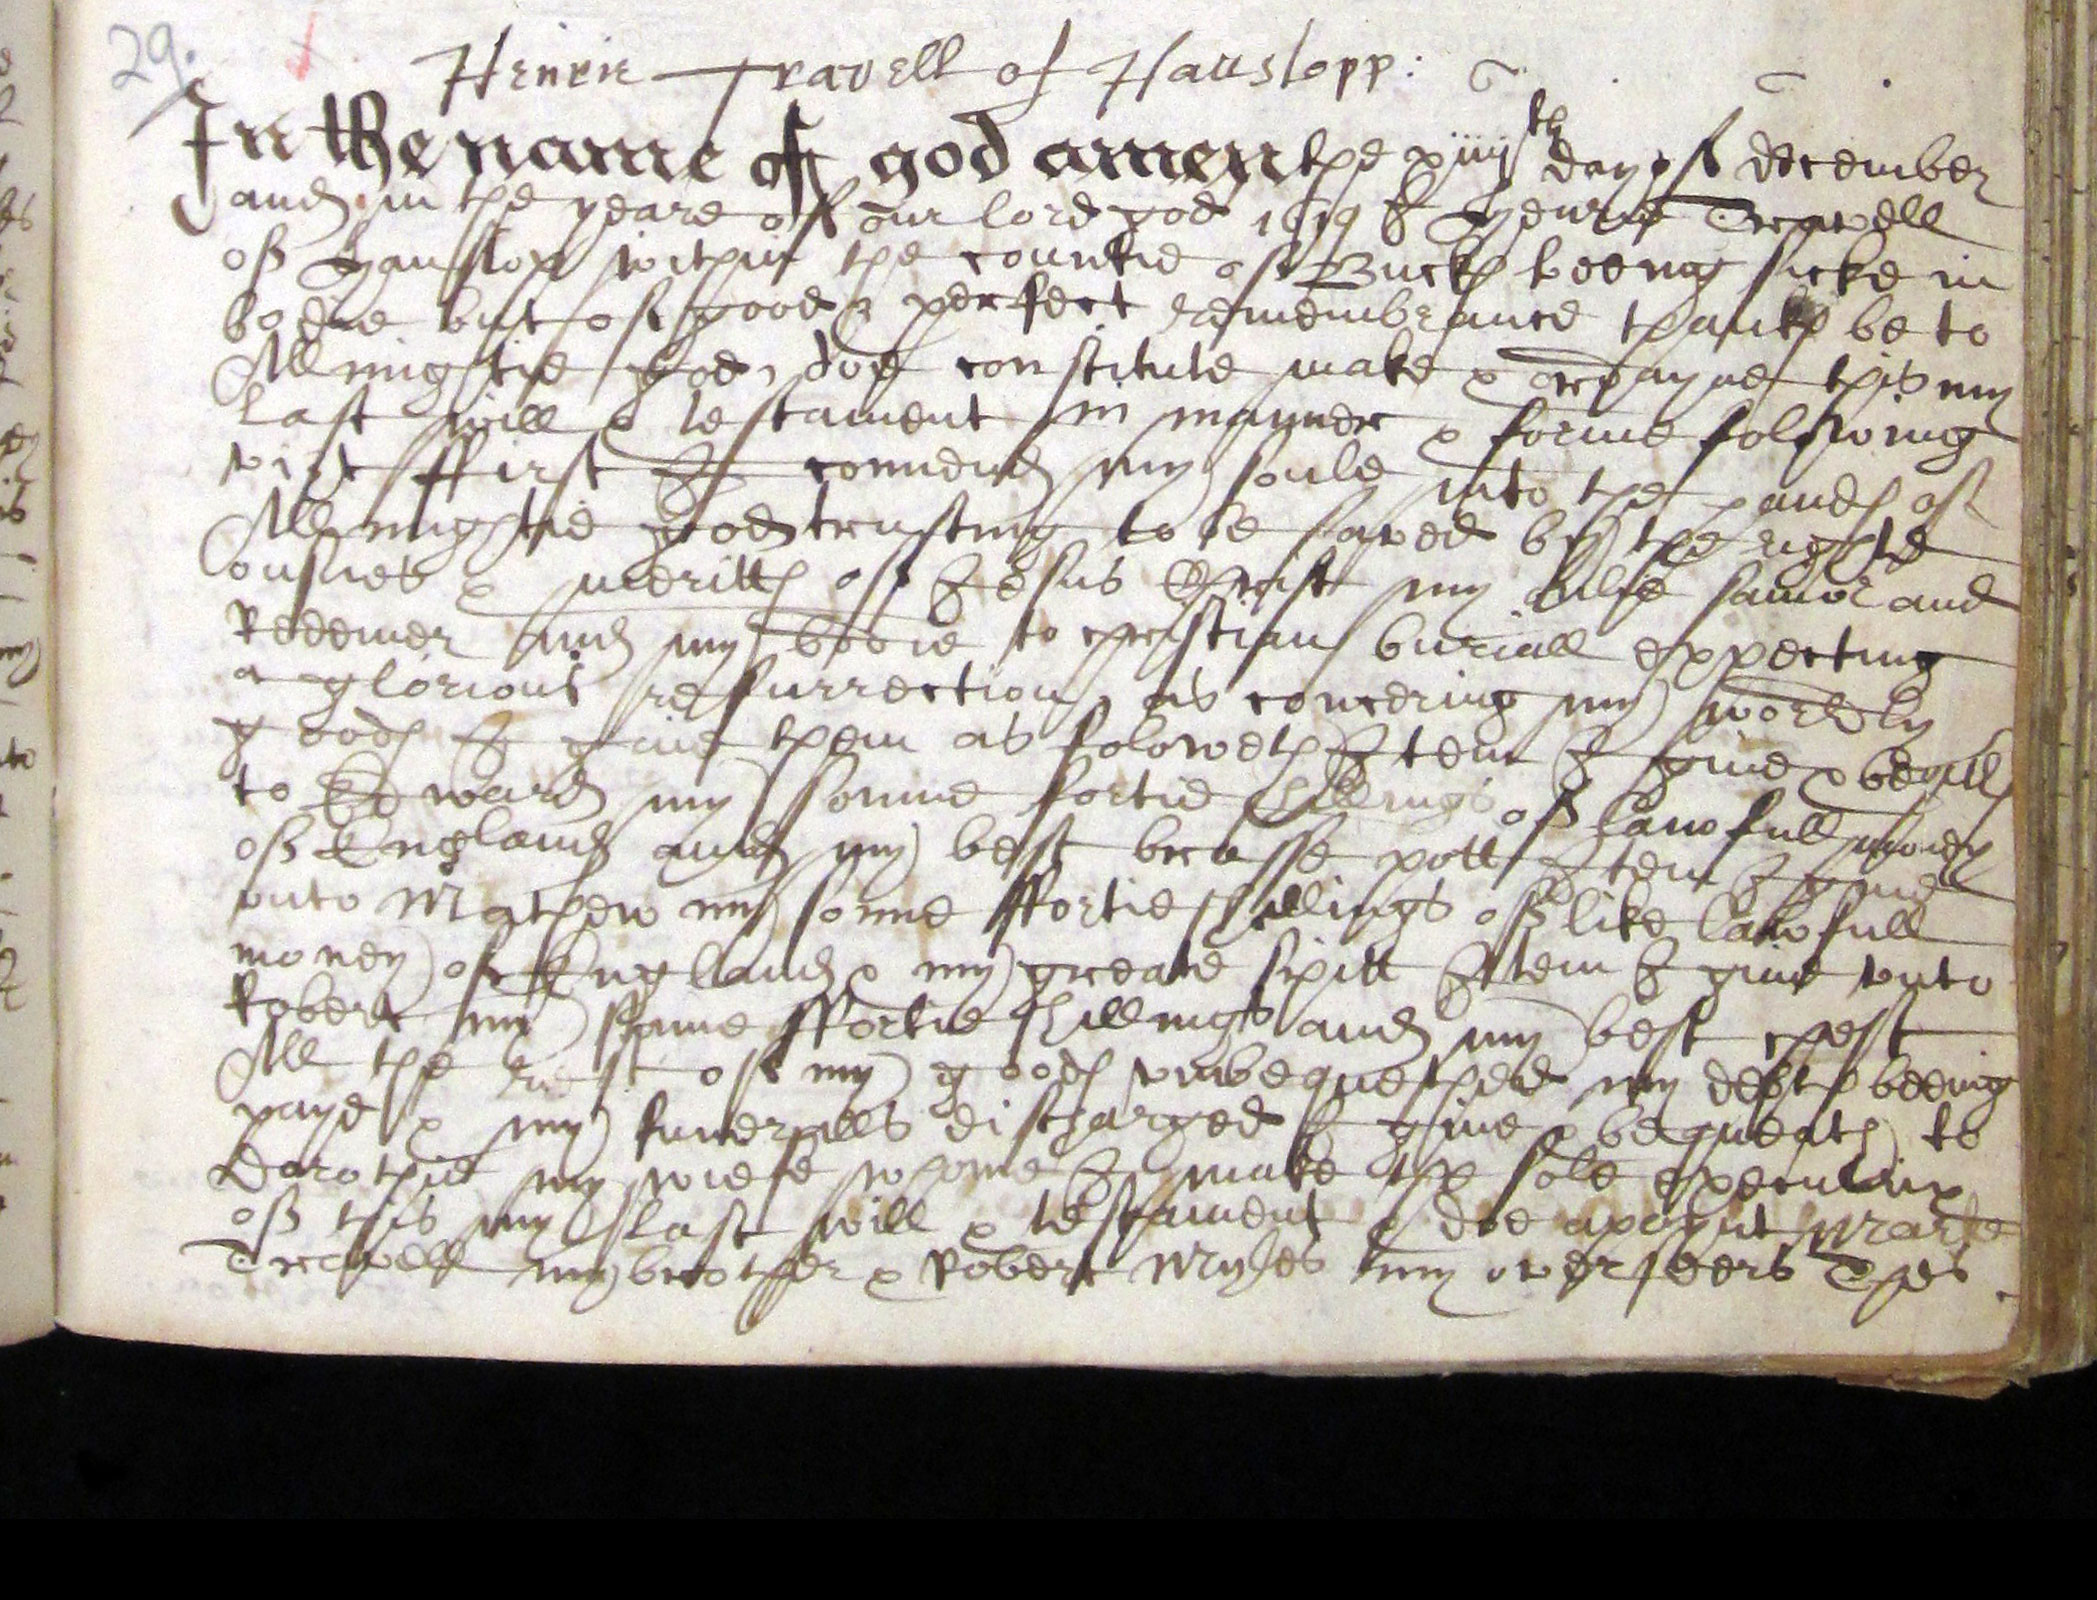 29.
Henrie Travell of Hanslopp:
In the name of god amen the xiiijth day of december
and in the yeare of our lord god 1619 I Henrie Travell
of Hanslop within the countie of Buck beeng sicke in
bodie but of good & perfect remembrance thank be to
Allmightie god, doe constitute make & ordayne this my
last will & testament in manner & forme folowing
vizt ffirst I commend my soule into the hands of
Allmightie god trusting to be saved by the righte
ousnes & meritts of Jesus Christ my savior and
Redemer and my bodie to christian buriall expecting
a glorious resurrection, as concering my worldly
goods I give them as foloweth Item I give & bequeth
to Edward my sonne fortie shillings of lawfull money
of England and my best brasse pott Item I give
unto Mathew my sonne ffortie shillings of like lawfull
money of England & my greate spitt Item I give unto
Robert my sonne ffortie shillings and my best chest
All the rest of my goods unbequethed my debts beeing
payd & my funeralls discharged I give & bequeath to
Dorothie my wiefe whome I make the sole executrix
of this my last will & testament & doe apoynt Marke
Travell my brother & Robert Myles my overseers Thes